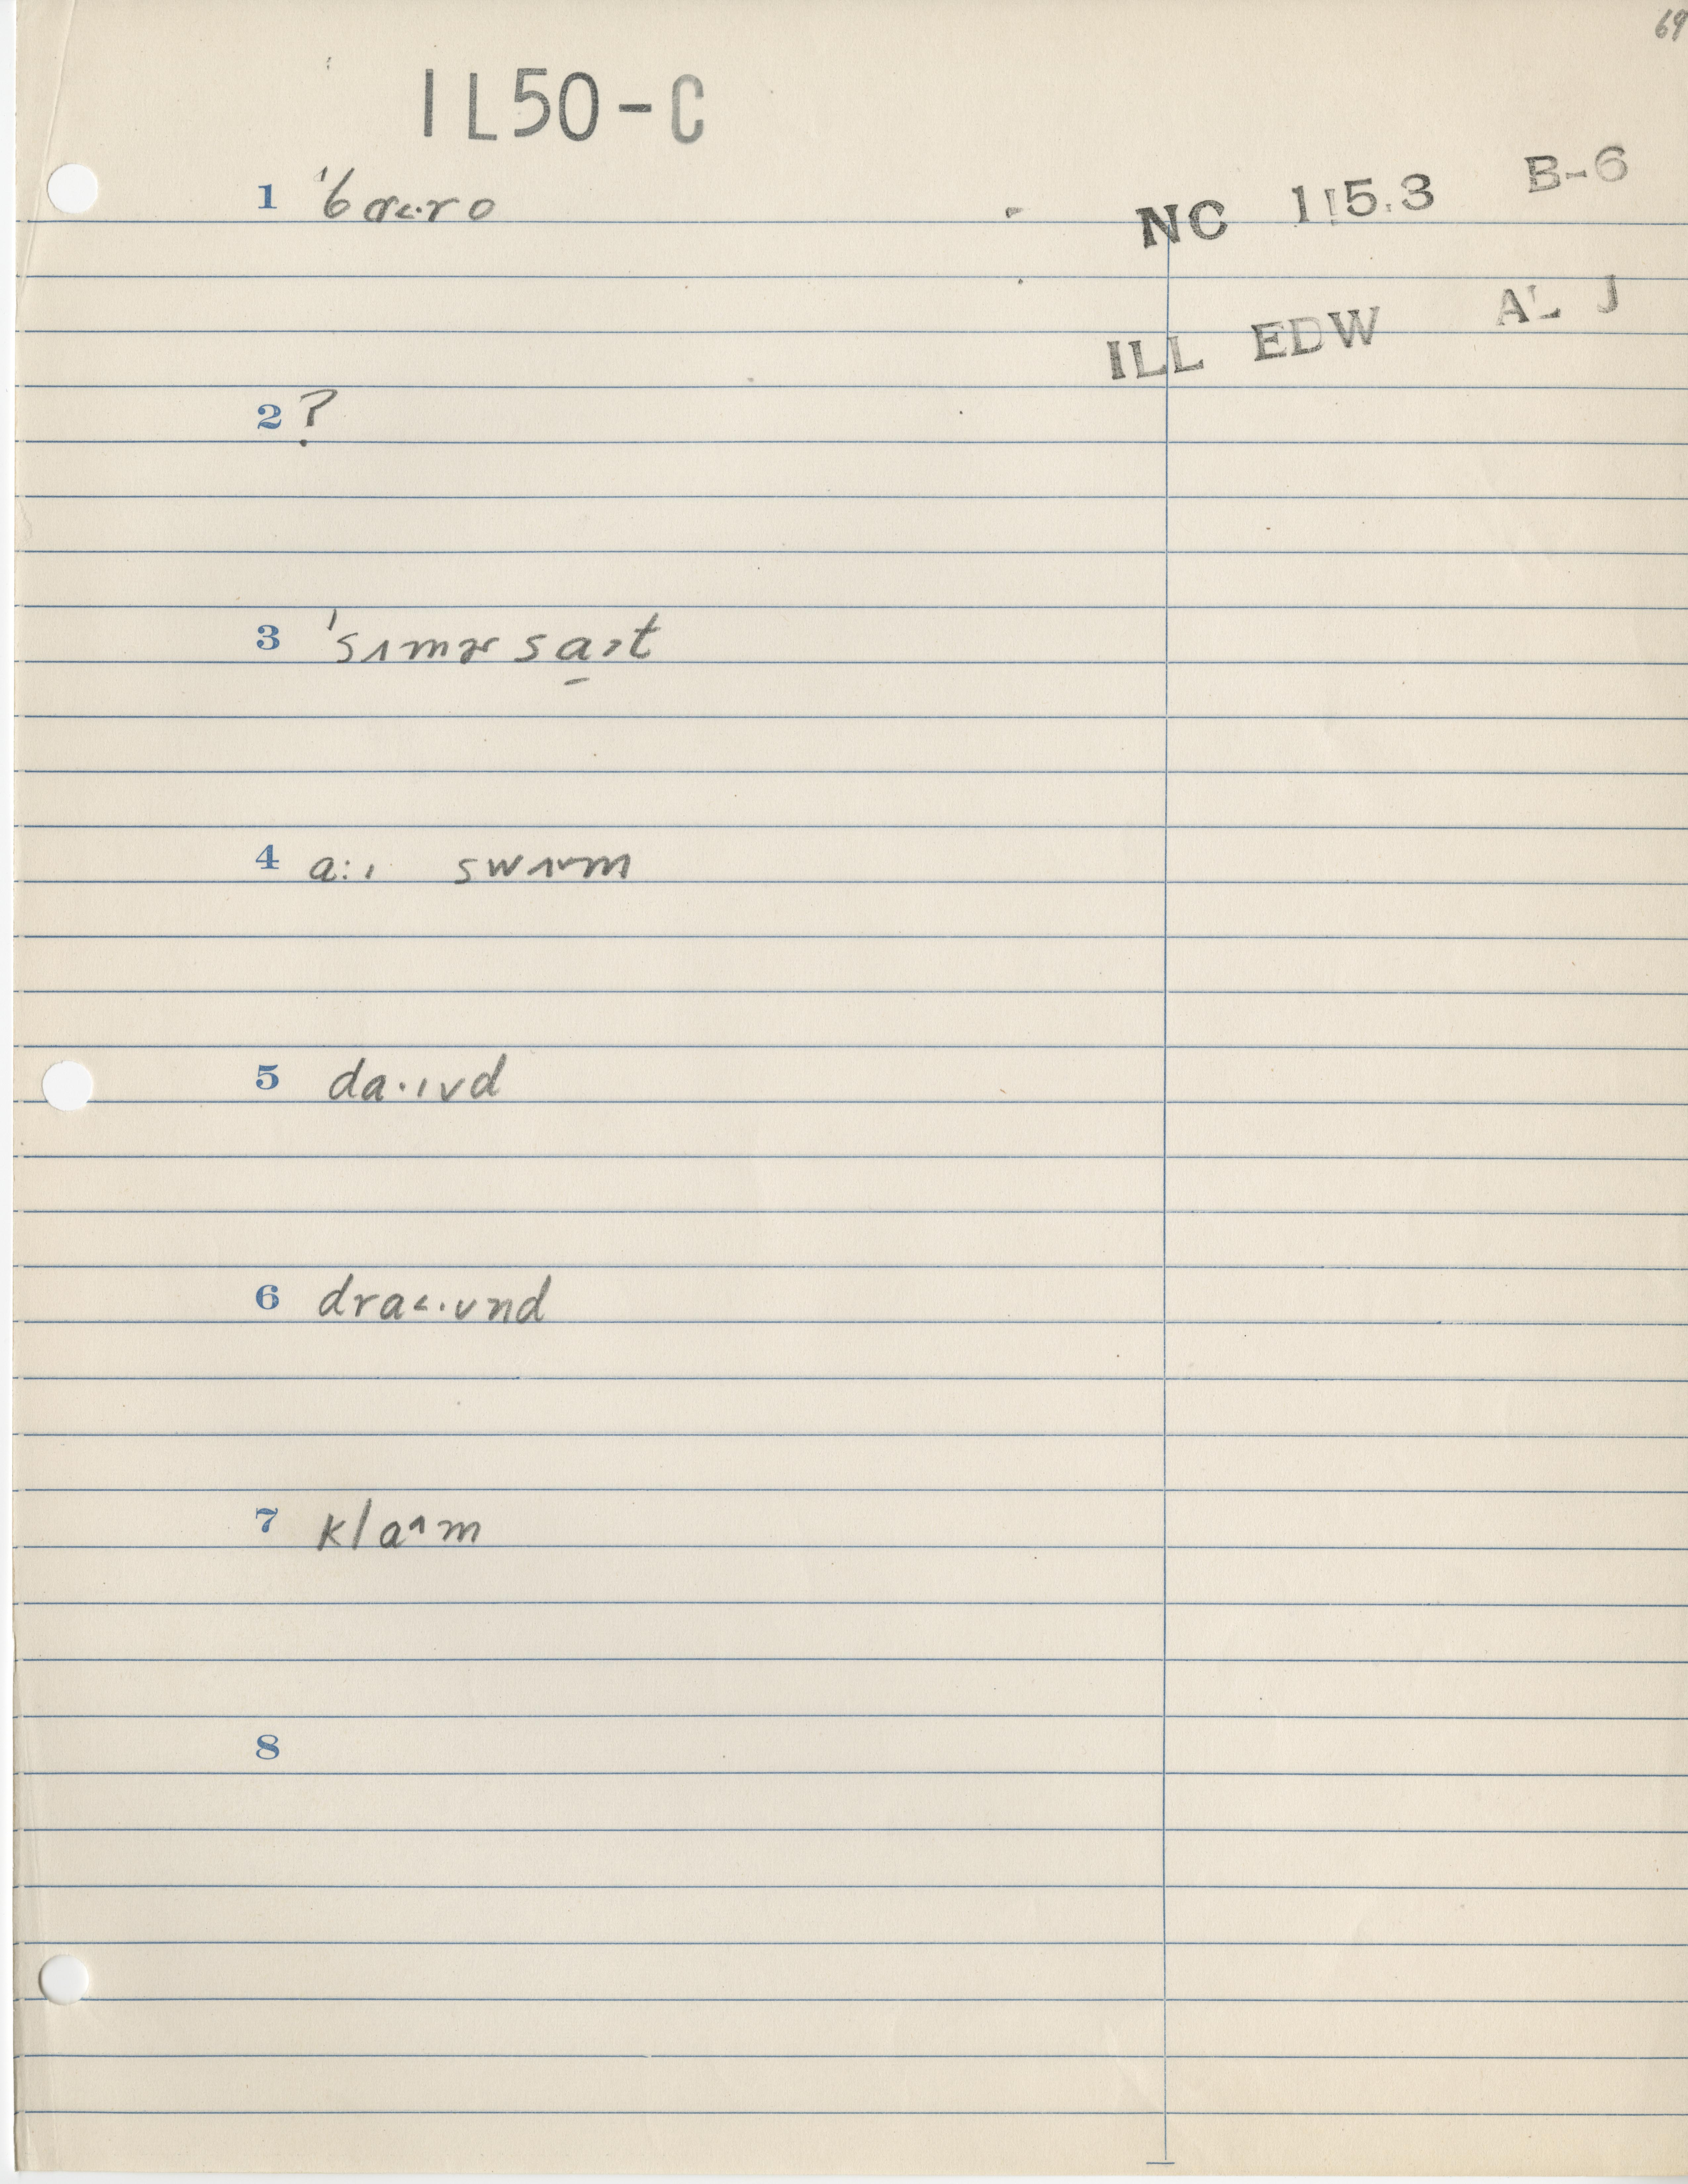 69
IL50-C
NC 115.3 B-6
ILL EDW AL J
1 ˈbɑ˂·ro
2 ?
3 ˈsʌmɚsa̠ɪt
4 a:ɪ swʌm
5 da·ɪvd
6 dra˂·ʊnd
7 klaɪm
8